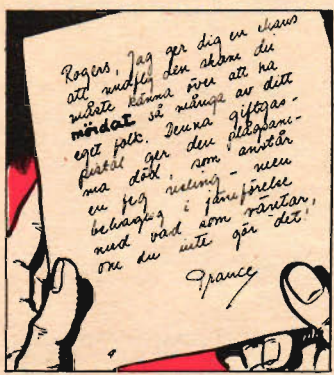 Rogers, Jag ger dig en chans
att undfly den skam du
måste känna över att ha
mördat så många av ditt
eget folk. Denna giftgas-
pistol ger den plågsam-
ma död, som anstår
en feg usling - men
behaglig i jämförelse
mid vad som väntar,
om du inte gör det!
Prance